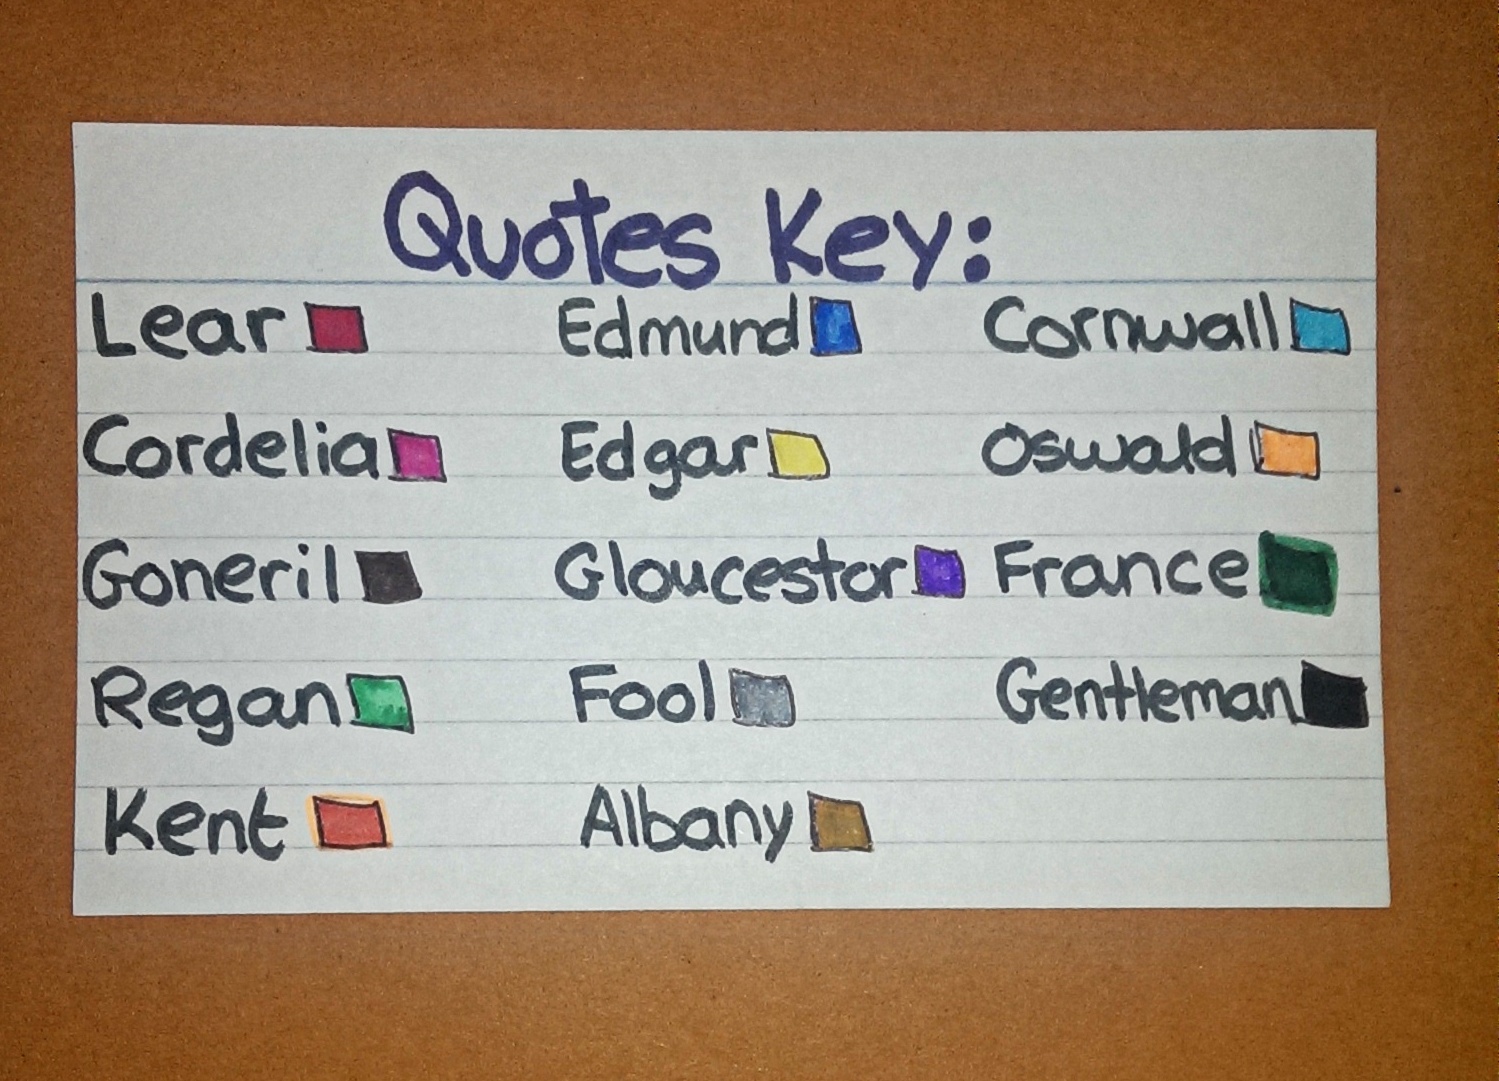 Quotes Key:
Lear Edmund Cornwall
Cordelia Edgar Oswald
Goneril Gloucestor France
Regan Fool Gentleman
Kent Albany